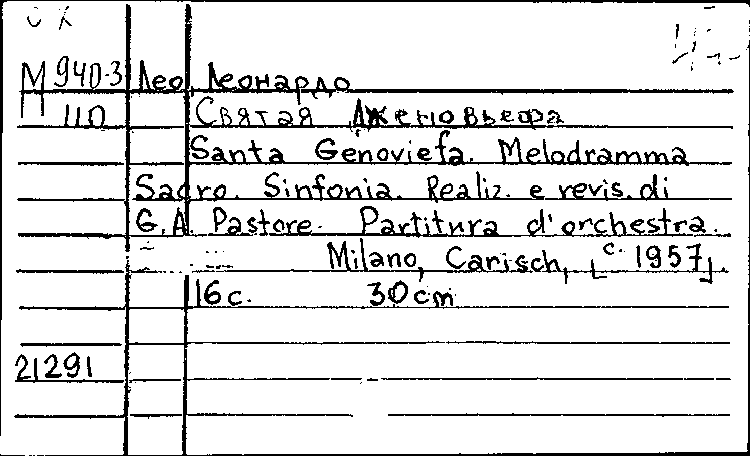 М 940-3 Лео, Леонардо
110 Святая Дженовьефа
Santa Genoviefa. Melodramma
Sacro. Sinfonia. Realiz. e revis. di
G.A. Pastore. Partitura d'orchestra.
Milano, Carisch, [c. 1957].
16 с. 30 cm
21291